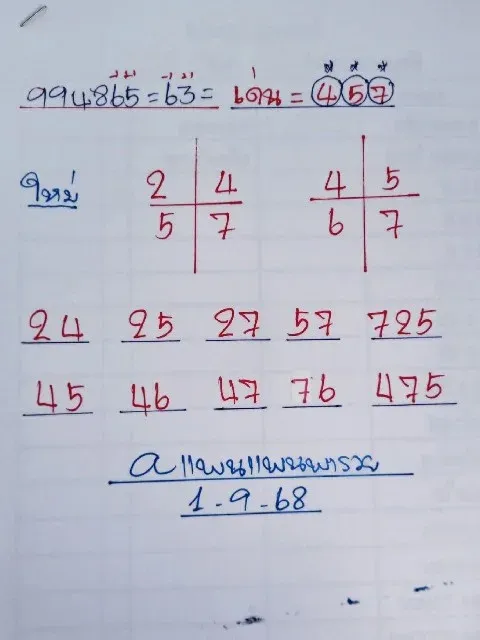 994865 = 63 = เด่น = 4 5 7
ใหม่
2 4
5 7
4 5
6 7
24 25 27 57 725
45 46 47 76 475
a แพนแพนพารวย
1-9-68